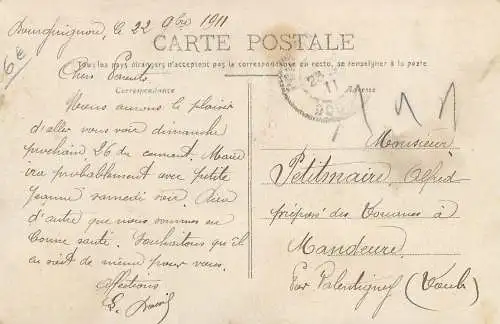 Bourguignon, le 22 9bre 1911
6e
CARTE POSTALE
Tous les pays étrangers n'acceptent pas la correspondance au recto, se renseigner à la poste
Correspondance
Adresse
Chers Parents
Nous aurons le plaisir
d'aller vous voir dimanche
prochain 26 du courant. Marie
ira probablement avec petite
Jeanne samedi soir. Rien
d'autre que nous sommes en
bonne santé. Souhaitons qu'il
en soit de même pour vous.
Affections
23
11
Monsieur
Petitnaire, Alfred
préposé des Douanes à
Mandeure
Par Valentigney (Doubs)